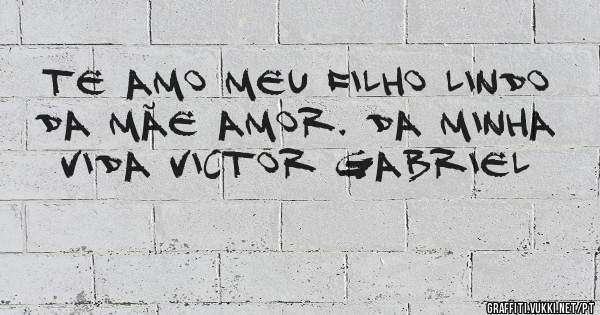 TE AMO MEU FILHO LINDO
DA MÃE AMOR. DA MINHA
VIDA VICTOR GABRIEL
GRAFFITI.VUKKI.NET/PT